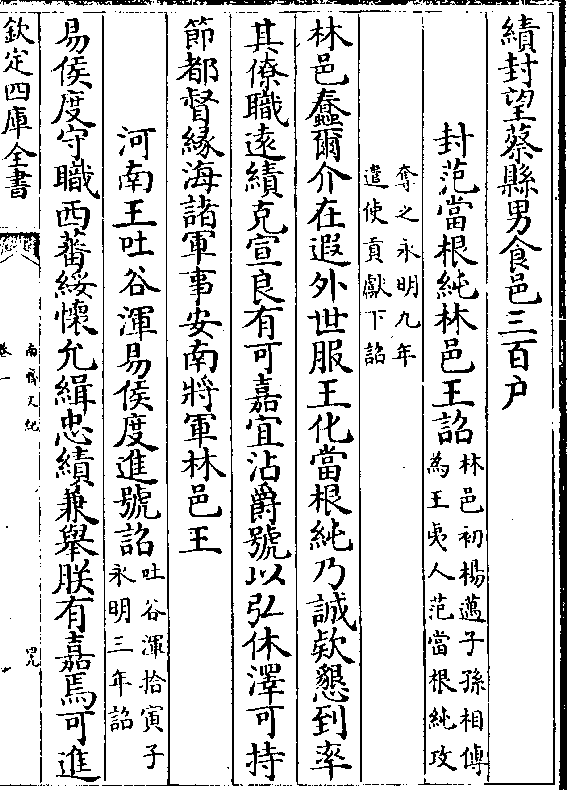 績封望蔡縣男食邑三百户
封范當根純林邑王詔
林邑初楊邁子孫相傳
為王夷人范當根純攻
奪之永明九年
遣使貢獻下詔
林邑蠢爾介在遐外世服王化當根純乃誠欵懇到率
其僚職遠績克宣良有可嘉宜沾爵號以弘休澤可持
節都督緣海諸軍事安南將軍林邑王
河南王吐谷渾易侯度進號詔
吐谷渾拾寅子
永明三年詔
易侯度守職西蕃綏懷允緝忠績兼舉朕有嘉焉可進
欽定四庫全書
南齊文紀
卷一